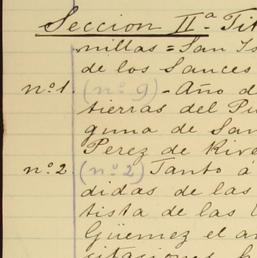 Seccion II.ª Tit
nillas = San Is
de los Sauces
nº 1. (nº 9) - Año d
tierras del Pu
guna de San
Perez de Rive
nº 2. (nº 2) Tanto á
didas de las
tista de las
Güemez el a
citaciones h